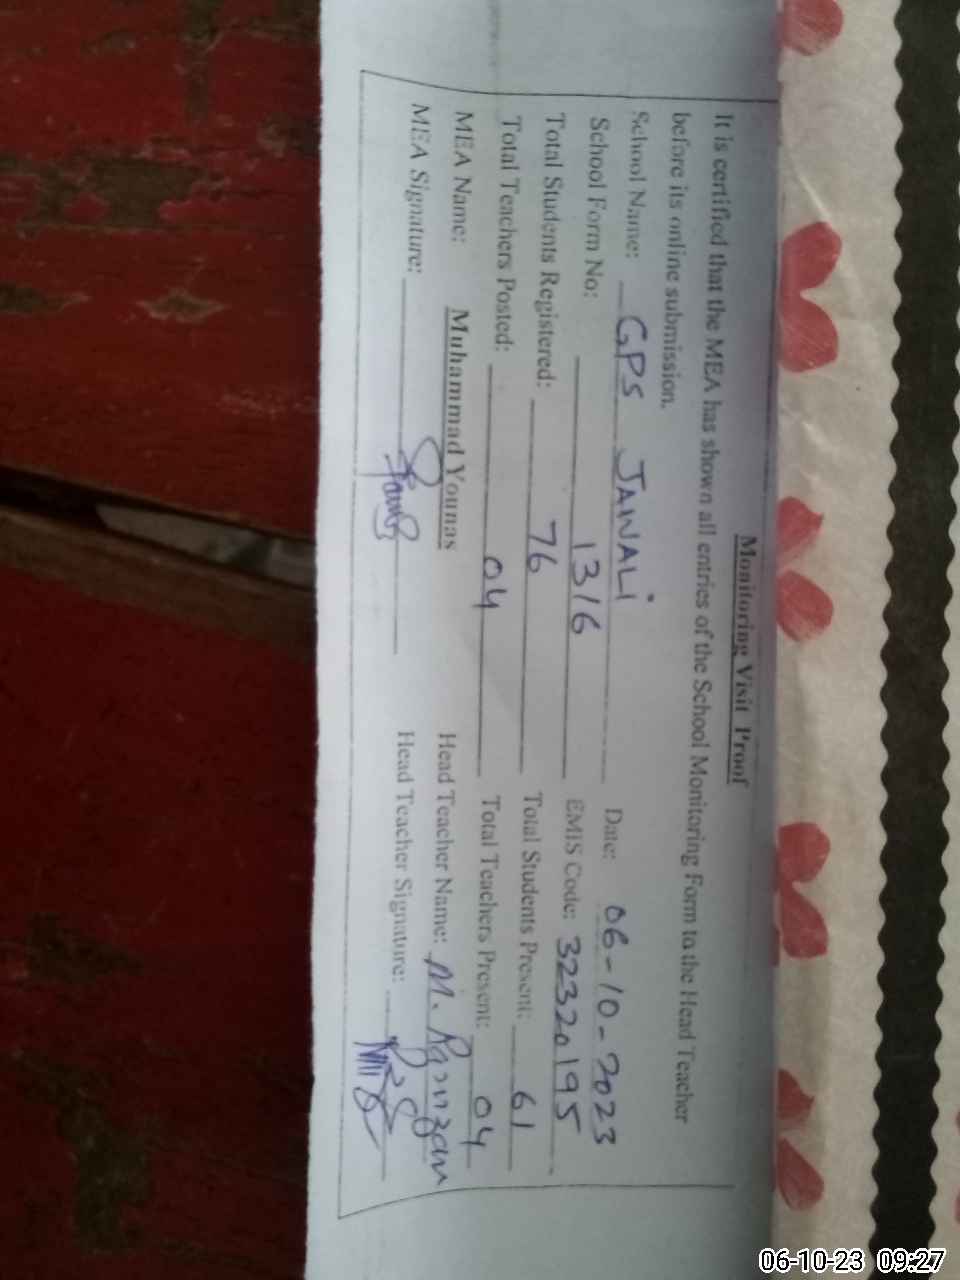 Monitoring Visit Proof
It is certified that the MEA has shown all entries of the School Monitoring Form to the Head Teacher
before its online submission.
School Name: GPS JANALi Date: 06-10-2023
School Form No: 1316 EMIS Code: 32320195
Total Students Registered: 76 Total Students Present: 61
Total Teachers Posted: 04 Total Teachers Present: 04
MEA Name: Muhammad Younas Head Teacher Name: M.
MEA Signature: Head Teacher Signature:
06-10-23 09:27